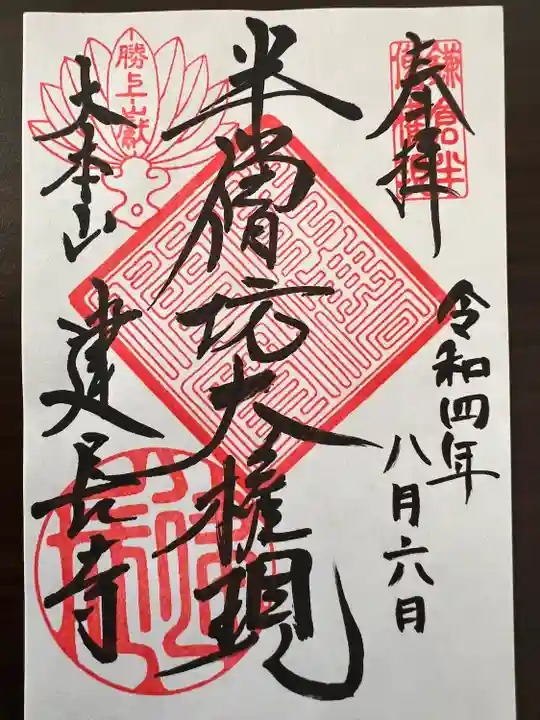 奉拝
鎌倉半僧坊
令和四年
八月六日
半僧坊大権現
勝上嶽
大本山
建長寺